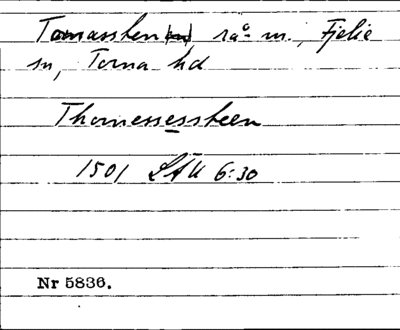 Tomassten, rå m., Fjelie
sn, Torna hd
Thomessessteen
1501 LÄU 6:30
Nr 5836.